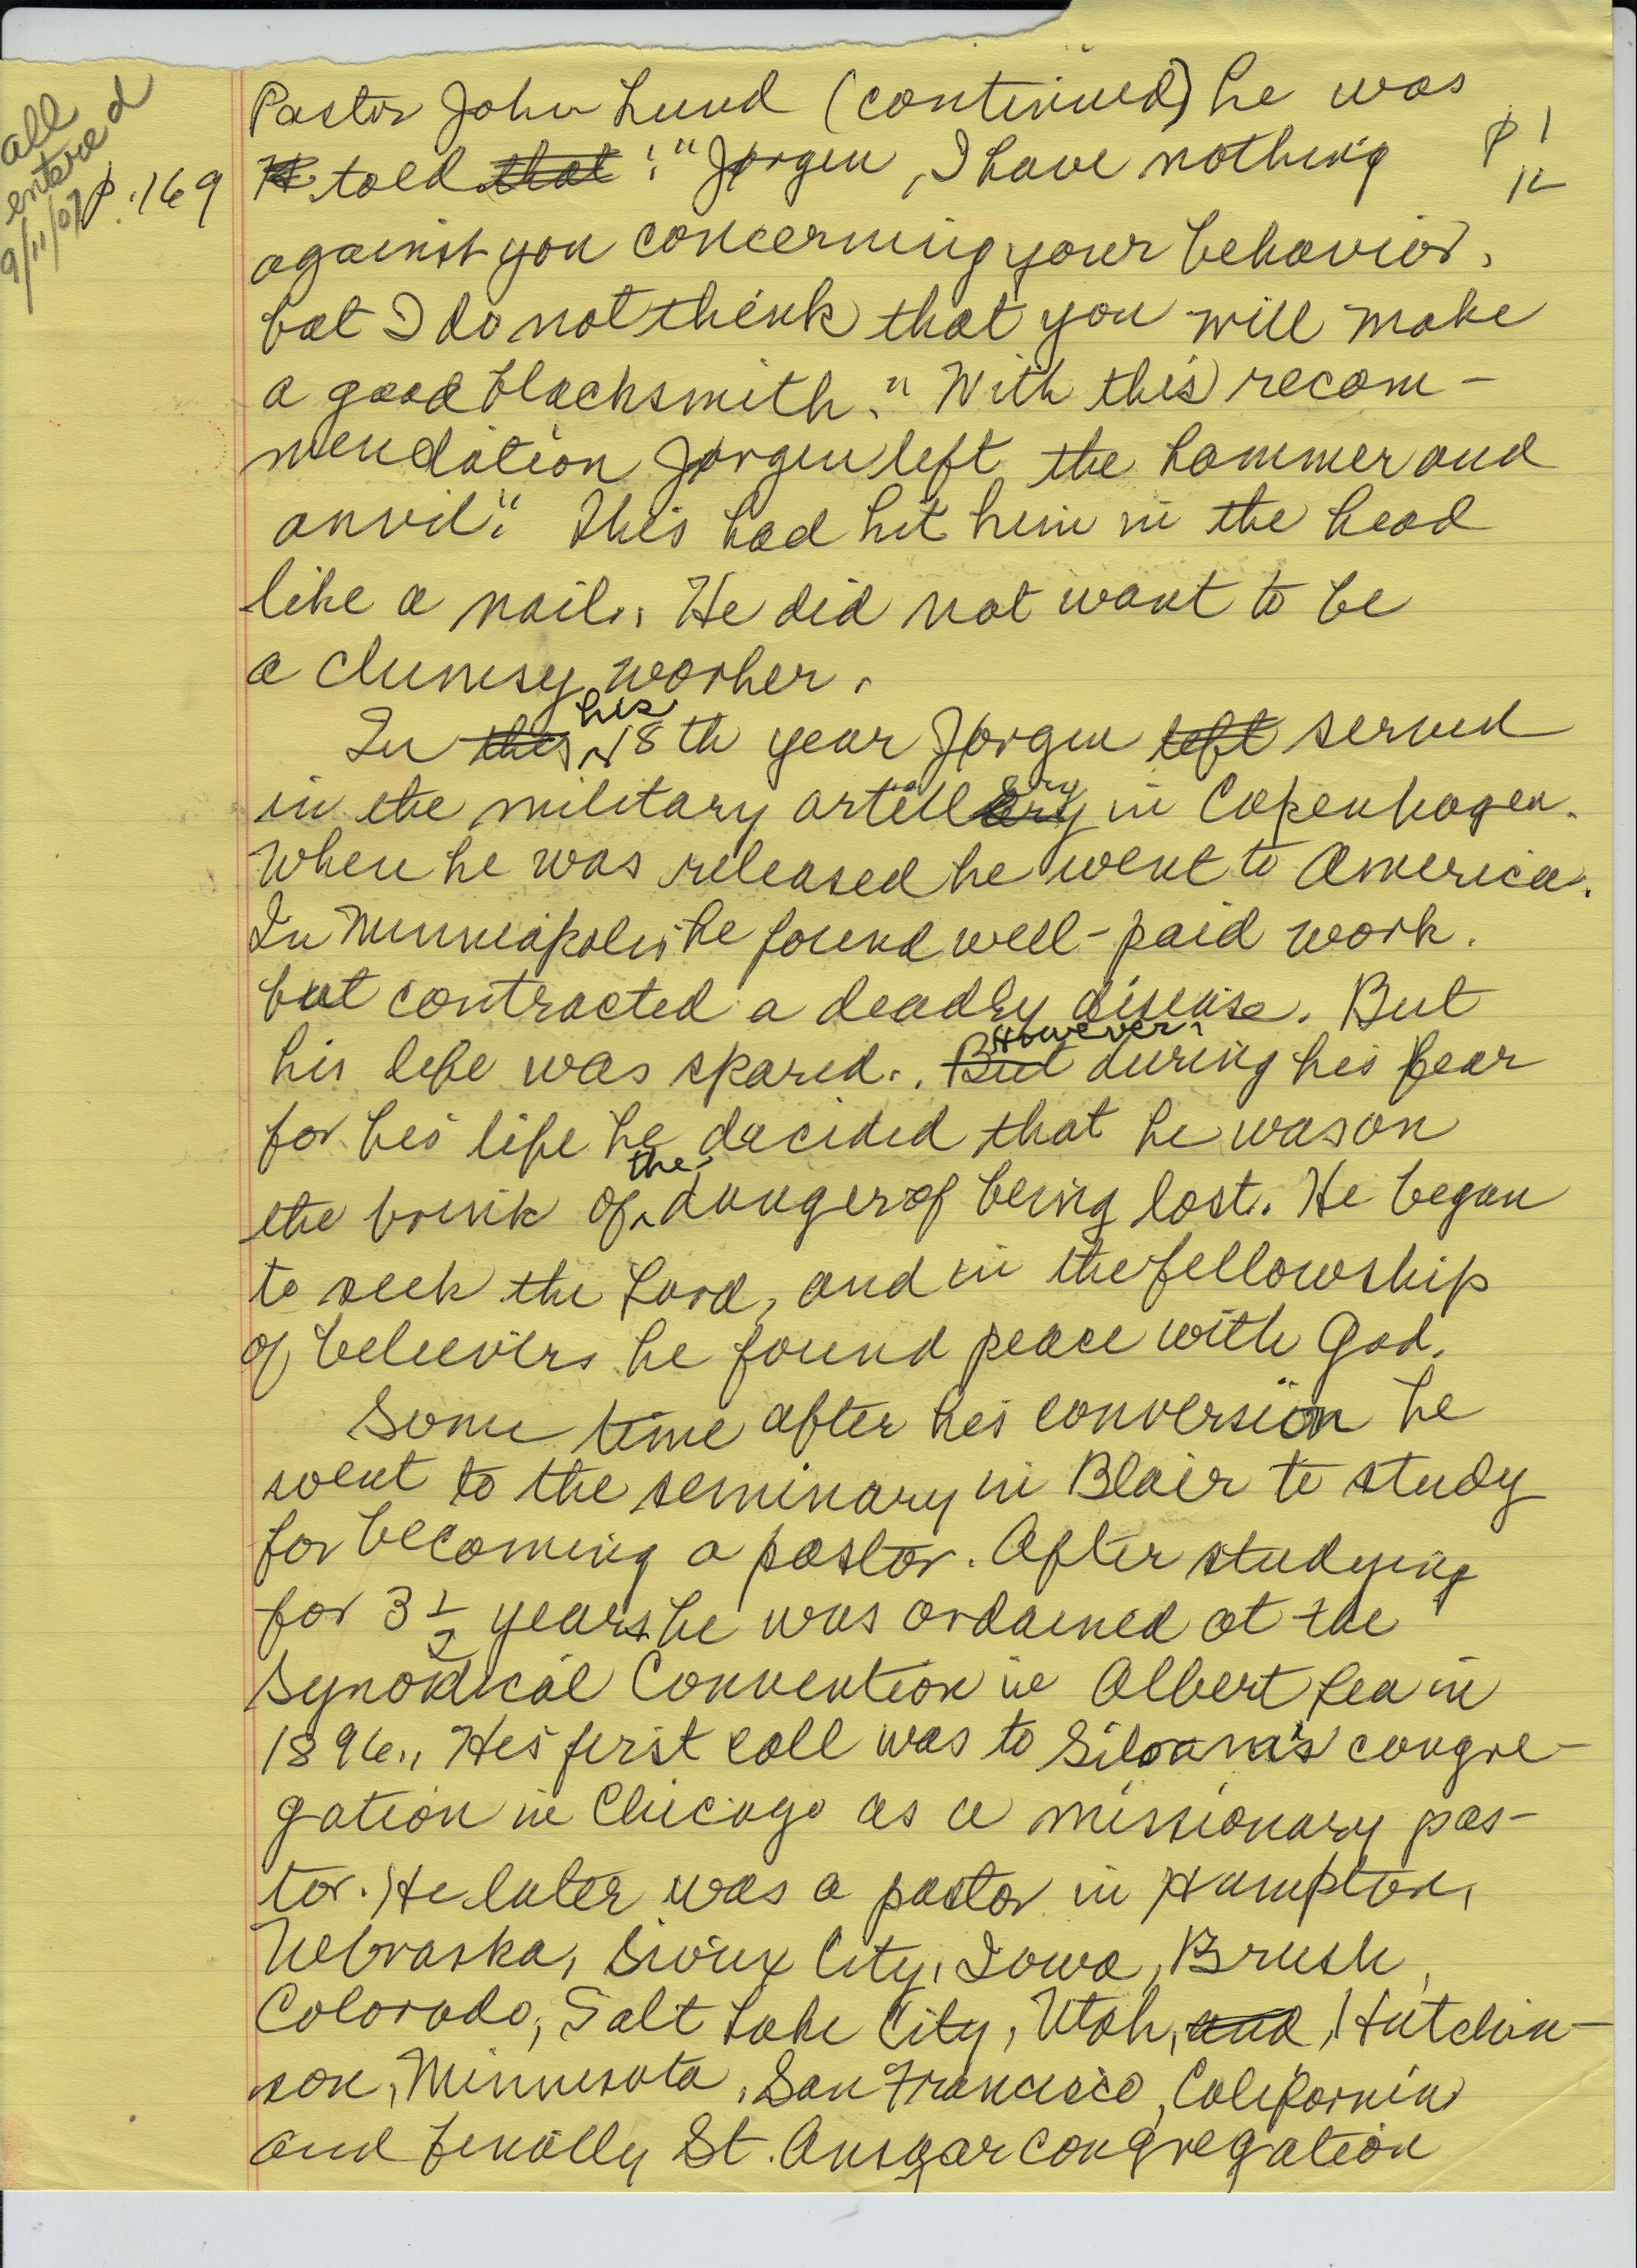 all
entered
9/11/07
p.169
p 1
12
Pastor John Lund (continued) he was
H told that: "Jørgen, I have nothing
against you concerning your behavior,
but I do not think that you will make
a good blacksmith." With this recom-
mendation Jørgen left the hammer and
anvil". This had hit him in the head
like a nail. He did not want to be
a clumsy worker.
In this his 18th year Jørgen left served
in the military artillery in Copenhagen.
When he was released he went to America.
In Minneapolis he found well-paid work.
but contracted a deadly disease. But
his life was spared. But However, during his fear
for his life he decided that he was on
the brink of the danger of being lost. He began
to seek the Lord, and in the fellowship
of believers he found peace with God.
Some time after his conversion he
went to the seminary in Blair to study
for becoming a pastor. After studying
for 3 1/2 years he was ordained at the
Synodical Convention in Albert Lea in
1896., His first call was to Siloam's congre-
gation in Chicago as a missionary pas-
tor. He later was a pastor in Hampton,
Nebraska, Sioux City, Iowa, Brush,
Colorado, Salt Lake City, Utah, and, Hutchin-
son, Minnesota, San Francisco, California
and finally St. Ansgar congregation